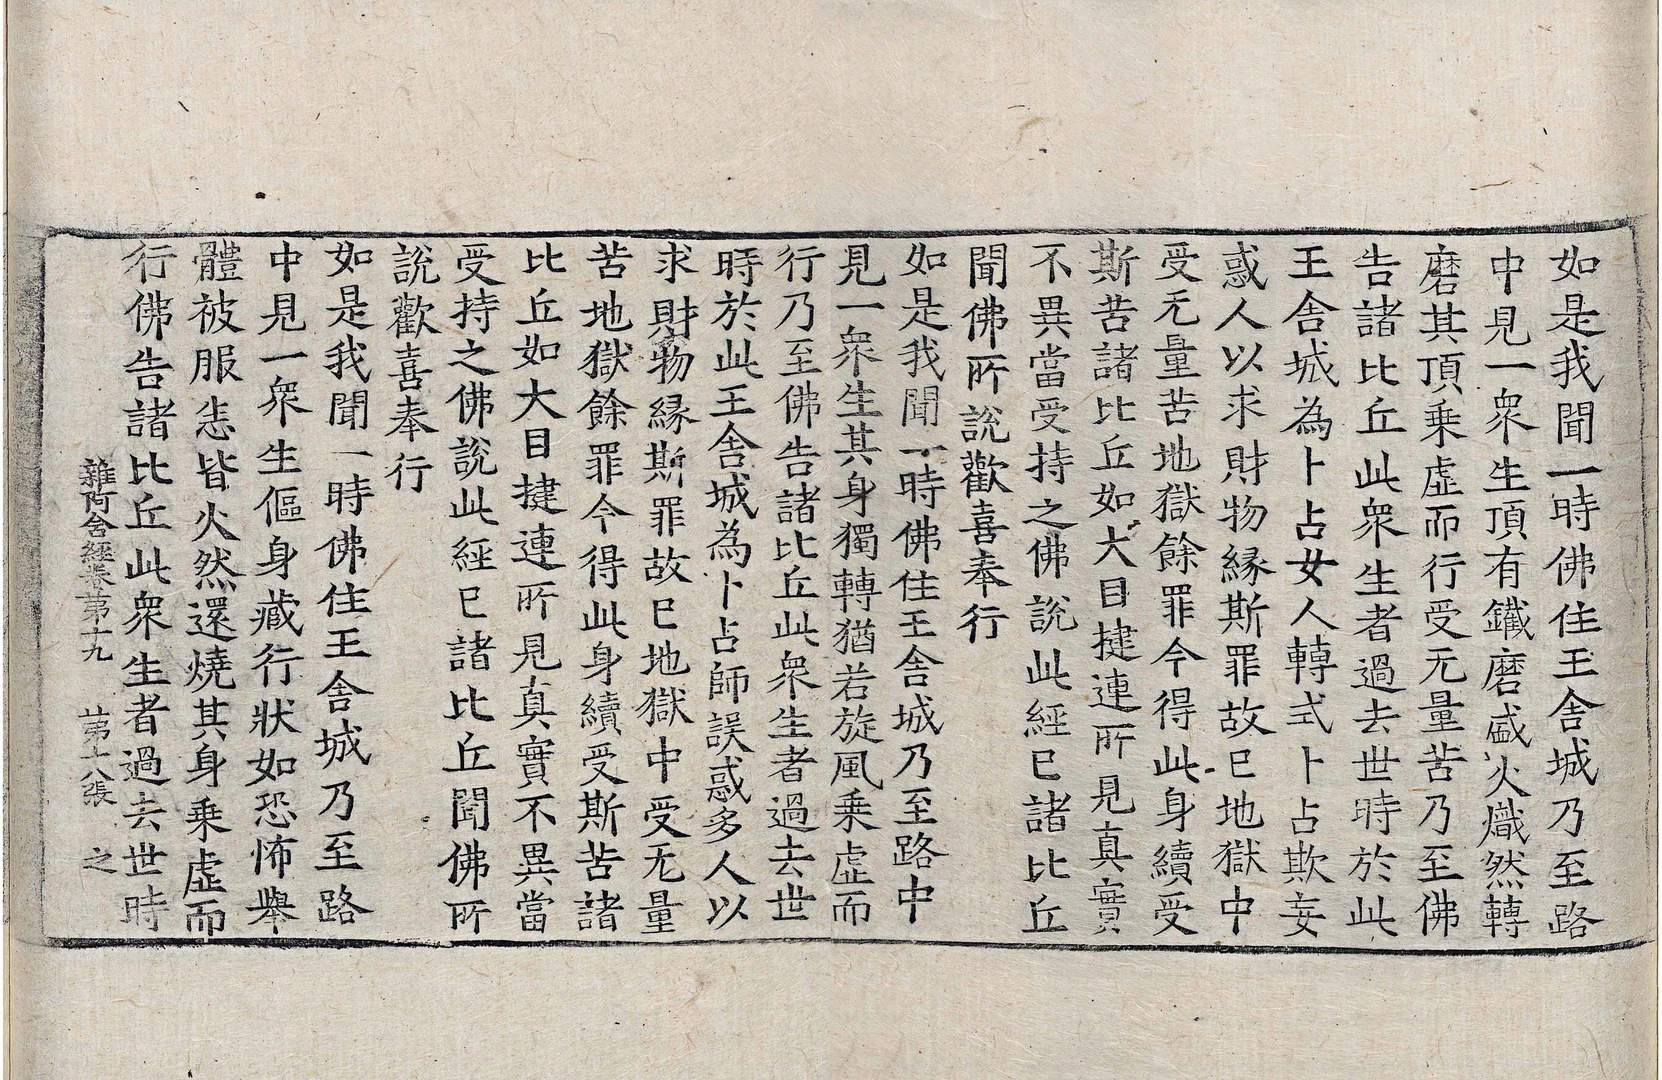 如是我聞一時佛住王舍城乃至路
中見一衆生頂有鐵磨盛火熾然轉
磨其頂乗虛而行受无量苦乃至佛
告諸比丘此衆生者過去世時於此
王舍城為卜占女人轉式卜占欺妄
惑人以求財物縁斯罪故已地獄中
受无量苦地獄餘罪今得此身續受
斯苦諸比丘如大目揵連所見真實
不異當受持之佛說此經已諸比丘
聞佛所說歡喜奉行
如是我聞一時佛住王舍城乃至路中
見一衆生其身獨轉猶若旋風乗虛而
行乃至佛告諸比丘此衆生者過去世
時於此王舍城為卜占師誤惑多人以
求財物縁斯罪故已地獄中受无量
苦地獄餘罪今得此身續受斯苦諸
比丘如大目揵連所見真實不異當
受持之佛說此經已諸比丘聞佛所
說歡喜奉行
如是我聞一時佛住王舍城乃至路
中見一衆生傴身藏行狀如恐怖舉
體被服悉皆火然還燒其身乗虛而
行佛告諸比丘此衆生者過去世時
雜阿含經卷第十九　第十八張　之